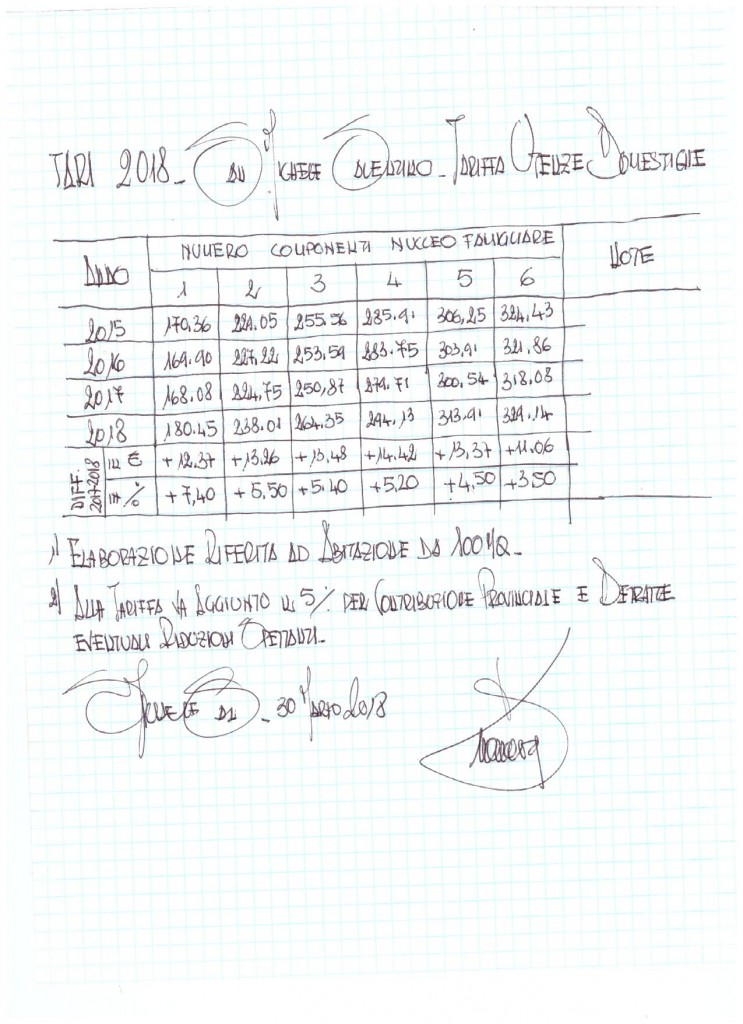 TARI 2018 - San Michele Salentino - Tariffa Utenze Domestiche
ANNO NUMERO COMPONENTI NUCLEO FAMIGLIARE NOTE
1 2 3 4 5 6
2015 170,36 229.05 255.56 285.91 306,25 324,43
2016 169.90 227,22 253.59 283.75 303,91 321,86
2017 168.08 224,75 250,87 279.71 300,54 318,08
2018 180.45 238.01 264.35 294,13 313.91 329,14
DIFF. 2017-2018 IN € +12.37 +13.26 +13,48 +14.42 +13,37 +11.06
IN % +7,40 +5,50 +5,40 +5,20 +4,50 +3,50
1) ELABORAZIONE RIFERITA AD ABITAZIONE DA 100 MQ-
2) ALLA TARIFFA VA AGGIUNTO IL 5% PER CONTRIBUZIONE PROVINCIALE E DETRATTE
EVENTUALI RIDUZIONI SPETTANTI-
30 MARZO 2018